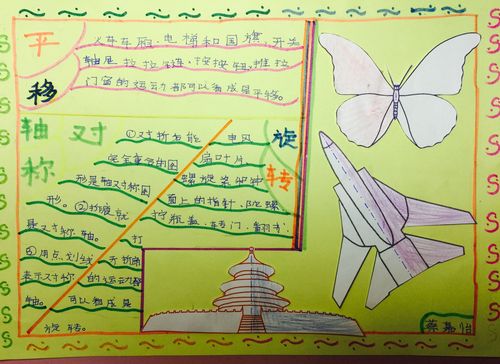 平移
火车车厢、电梯和国旗、开关
抽屉、拉拉链、按按钮、推拉
门窗的运动都可以看成是平移。
轴对称
①对折后能
完全重合的图
形是轴对称图
形。②折痕就
是对称轴。
③用点划线
表示对称
轴。
旋转
电风
扇叶片、
螺旋桨、钟
面上的指针、陀螺
拧瓶盖、转门、翻书、
打开折扇
的运动都
可以看成是
旋转。
蔡嘉怡